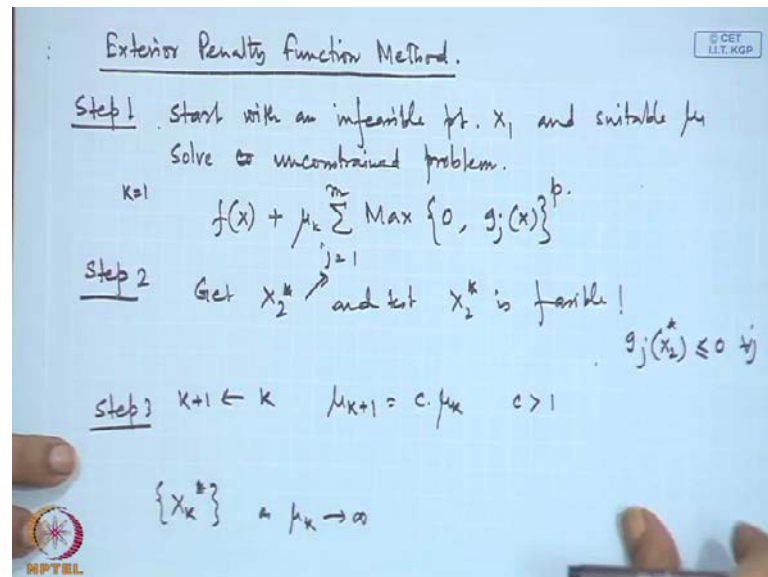 Exterior Penalty Function Method.
© CET
I.I.T. KGP
Step 1 Start with an infeasible pt. X₁ and suitable μ₁
Solve unconstrained problem.
K=1
f(x) + μₖ ∑ⱼ₌₁ᵐ Max {0, gⱼ(x)}ᵖ.
Step 2 Get X₂* and test X₂* is fasible!
gⱼ(X₂*) ≤ 0 ∀j
Step 3 K+1 ← K μₖ₊₁ = c. μₖ c > 1
{Xₖ*} as μₖ → ∞
NPTEL